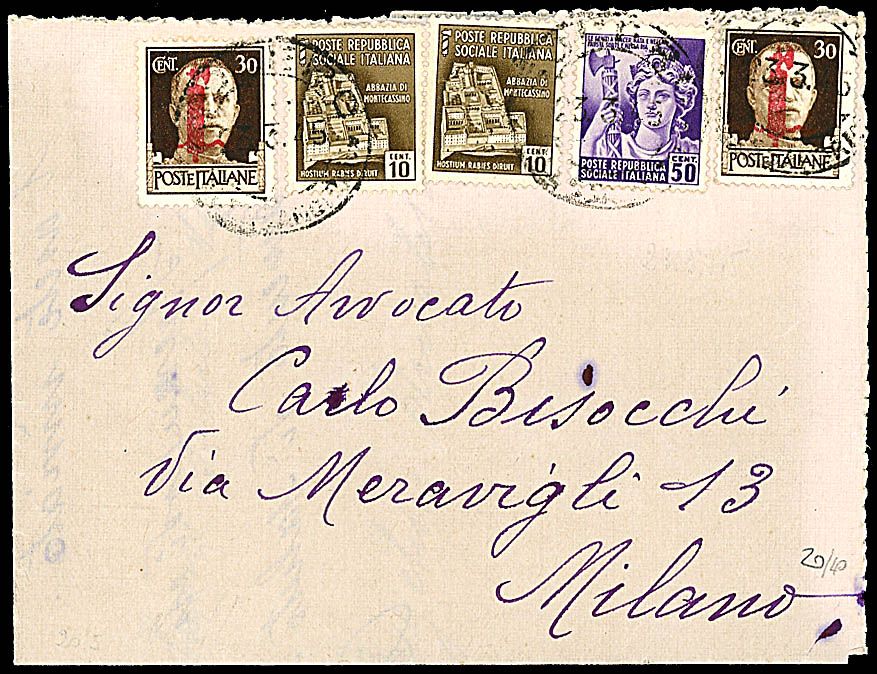 CENT. 30
POSTE ITALIANE
POSTE REPUBBLICA
SOCIALE ITALIANA
ABBAZIA DI
MONTECASSINO
HOSTIUM RABIES DIRUIT
CENT. 10
POSTE REPUBBLICA
SOCIALE ITALIANA
ABBAZIA DI
MONTECASSINO
HOSTIUM RABIES DIRUIT
CENT. 10
POSTE REPUBBLICA
SOCIALE ITALIANA
CENT. 50
CENT. 30
POSTE ITALIANE
Signor Avvocato
Carlo Bisocchi
Via Meravigli 13
Milano
20/40